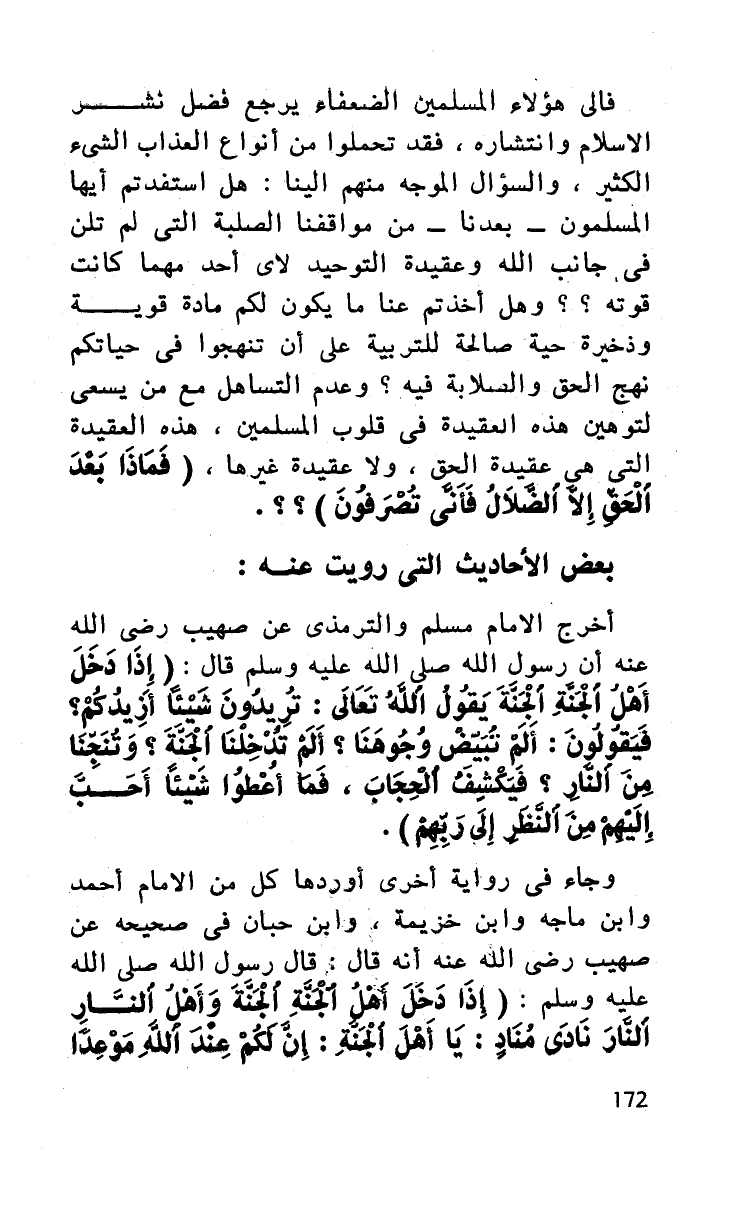 فالى هؤلاء المسلمين الضعفاء يرجع فضل نشـــــر
الاسلام وانتشاره ، فقد تحملوا من أنواع العذاب الشىء
الكثير ، والسؤال الموجه منهم الينا : هل استفدتم أيها
المسلمون ــ بعدنا ــ من مواقفنا الصلبة التى لم تلن
فى جانب الله وعقيدة التوحيد لاى أحد مهما كانت
قوته ؟ ؟ وهل أخذتم عنا ما يكون لكم مادة قويـــــة
وذخيرة حية صالحة للتربية على أن تنهجوا فى حياتكم
نهج الحق والصلابة فيه ؟ وعدم التساهل مع من يسعى
لتوهين هذه العقيدة فى قلوب المسلمين ، هذه العقيدة
التى هى عقيدة الحق ، ولا عقيدة غيرها ، ( فَمَاذَا بَعْدَ
ٱلْحَقِّ إِلاَّ ٱلضَّلاَلُ فَأَنَّى تُصْرَفُونَ ) ؟ ؟ .
بعض الأحاديث التى رويت عنـه :
أخرج الامام مسلم والترمذى عن صهيب رضى الله
عنه أن رسول الله صلى الله عليه وسلم قال : ( إِذَا دَخَلَ
أَهْلُ ٱلْجَنَّةِ ٱلْجَنَّةَ يَقُولُ ٱللَّهُ تَعَالَى : تُرِيدُونَ شَيْئًا أَزِيدُكُمْ؟
فَيَقُولُونَ : أَلَمْ تُبَيِّضْ وُجُوهَنَا ؟ أَلَمْ تُدْخِلْنَا ٱلْجَنَّةَ ؟ وَتُنَجِّنَا
مِنَ ٱلنَّارِ ؟ فَيَكْشِفُ ٱلْحِجَابَ ، فَمَا أُعْطُوا شَيْئًا أَحَـــبَّ
إِلَيْهِمْ مِنَ ٱلنَّظَرِ إِلَى رَبِّهِمْ ) .
وجاء فى رواية أخرى أوردها كل من الامام أحمد
وابن ماجه وابن خزيمة ، وابن حبان فى صحيحه عن
صهيب رضى الله عنه أنه قال : قال رسول الله صلى الله
عليه وسلم : ( إِذَا دَخَلَ أَهْلُ ٱلْجَنَّةِ ٱلْجَنَّةَ وَأَهْلُ ٱلنَّـــارِ
ٱلنَّارَ نَادَى مُنَادٍ : يَا أَهْلَ ٱلْجَنَّةِ : إِنَّ لَكُمْ عِنْدَ ٱللَّهِ مَوْعِدًا
172